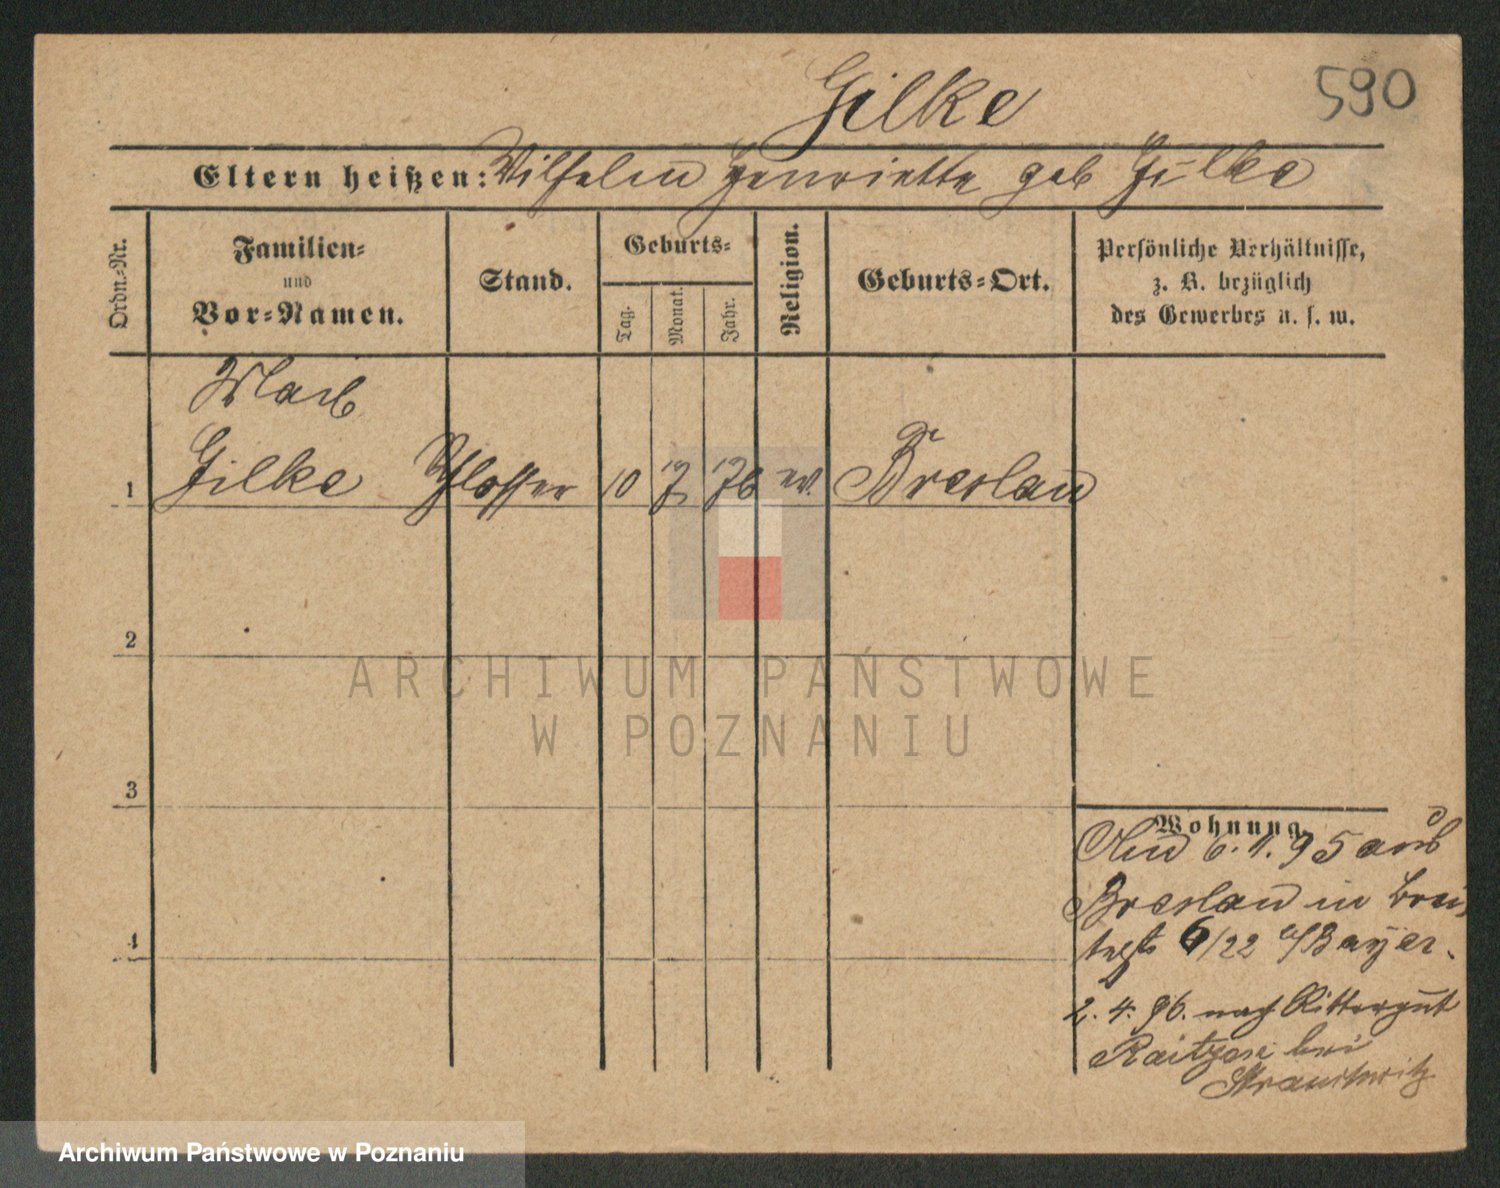 Gilke
590
Eltern heißen: Wilhelm Henriette geb Gilke
Ordn.-Nr.
Familien-
und
Vor-Namen.
Stand.
Geburts-
Tag.
Monat.
Jahr.
Religion.
Geburts-Ort.
Persönliche Verhältnisse,
z. B. bezüglich
des Gewerbes u. s. w.
1 Gilke Schlosser 10 7 76 ev. Breslau
2
3
4
Wohnung.
6. 1. 95 aus
Breslau in
6/22 Bayer.
2. 4. 96. nach Rittergut
bei
ARCHIWUM PAŃSTWOWE
W POZNANIU
Archiwum Państwowe w Poznaniu